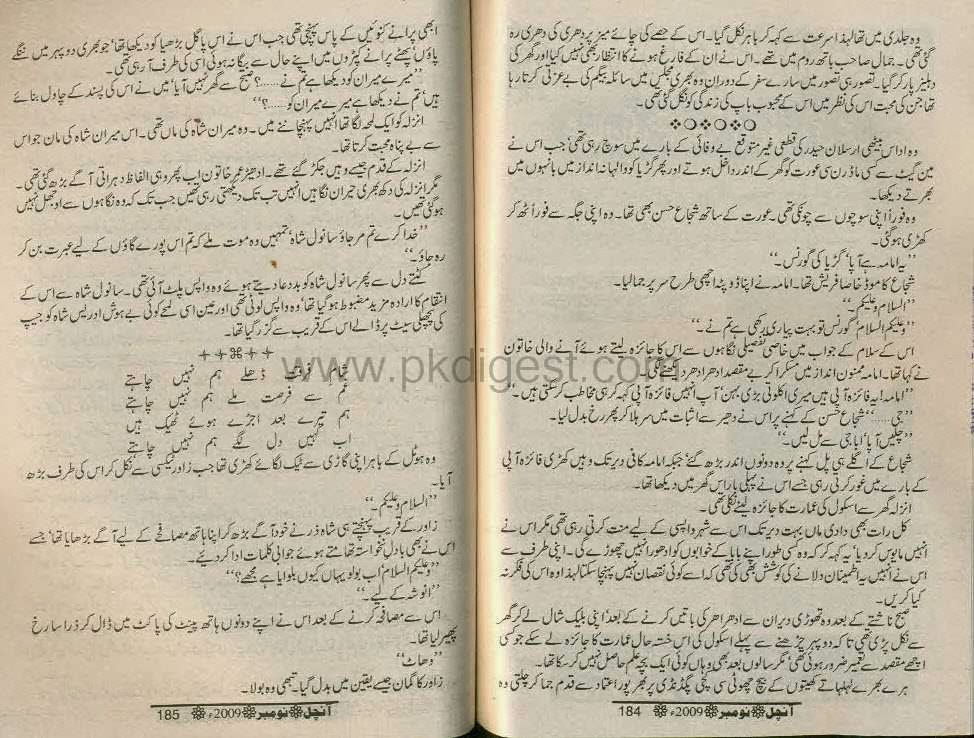 وہ جلدی میں تھا لہٰذا سرعت سے کہہ کر باہر نکل گیا۔ اس کے حصے کی چائے میز پر دھری کی دھری رہ
گئی تھی۔ جمال صاحب باتھ روم میں تھے۔ اس نے ان کے فارغ ہونے کا انتظار بھی نہیں کیا اور گھر کی
دہلیز پار کر گیا۔ تصور ہی تصور میں سارے سفر کے دوران وہ بھری مجلس میں سائلہ بیگم کی بے عزتی کرتا رہا
تھا جن کی محبت اس کی نظر میں اس کے محبوب باپ کی زندگی کو نگل گئی تھی۔
وہ اداس بیٹھی ارسلان حیدر کی قطعی غیر متوقع بے وفائی کے بارے میں سوچ رہی تھی‘ جب اس نے
مین گیٹ سے کسی ماڈرن سی عورت کو گھر کے اندر داخل ہوتے اور پھر گڑیا کو والہانہ انداز میں بانہوں میں
بھرتے دیکھا۔
وہ فوراً اپنی سوچوں سے چونکی تھی۔ عورت کے ساتھ شجاع حسن بھی تھا۔ وہ اپنی جگہ سے فوراً اٹھ کر
کھڑی ہو گئی۔
”یہ امامہ ہے آپا‘ گڑیا کی گورنس۔“
شجاع کا موڈ خاصا فریش تھا۔ امامہ نے اپنا دوپٹہ اچھی طرح سر پر جما لیا۔
”السلام وعلیکم۔“
”وعلیکم السلام‘ گورنس تو بہت پیاری رکھی ہے تم نے۔“
اس کے سلام کے جواب میں خاصی تفصیلی نگاہوں سے اس کا جائزہ لیتے ہوئے آنے والی خاتون
نے کہا تھا۔ امامہ ممنون انداز میں مسکرا کر بے مقصد ادھر ادھر دیکھنے لگی۔
”امامہ! یہ فائزہ آپی ہیں میری اکلوتی بڑی بہن‘ آپ انہیں فائزہ آپی کہہ کر ہی مخاطب کر سکتی ہیں۔“
”جی.....“ شجاع حسن کے کہنے پر اس نے دھیرے سے اثبات میں سر ہلا کر پھر رخ بدل لیا۔
”چلیں آپا‘ اباجی سے مل لیں۔“
شجاع کے اگلے ہی پل کہنے پر وہ دونوں اندر بڑھ گئے‘ جبکہ امامہ کافی دیر تک وہیں کھڑی فائزہ آپی
کے بارے میں غور کرتی رہی جسے اس نے پہلی بار اس گھر میں دیکھا تھا۔
انزلہ گھر سے اسکول کی عمارت کا جائزہ لینے نکلی تھی۔
کل رات بھی دادی ماں بہت دیر تک اس سے شہر واپسی کے لیے منت کرتی رہی تھی مگر اس نے
انہیں مایوس کر دیا‘ یہ کہہ کر کہ وہ کسی طور اپنے پاپا کے خوابوں کو ادھورا نہیں چھوڑے گی۔ اپنی طرف سے
اس نے انہیں یہ اطمینان دلانے کی کوشش بھی کی تھی کہ اسے کوئی نقصان نہیں پہنچا سکتا لہٰذا وہ اس کی فکر نہ
کیا کریں۔
صبح ناشتے کے بعد وہ تھوڑی دیر ان سے ادھر ادھر کی باتیں کرنے کے بعد‘ اپنی بلیک شال لے کر گھر
سے نکل پڑی تھی تاکہ دوپہر چڑھنے سے پہلے اسکول کی اس خستہ حال عمارت کا جائزہ لے سکے جو کسی
اچھے مقصد سے تعمیر ضرور ہوئی تھی‘ مگر سالوں بعد بھی وہاں کوئی ایک بچہ علم حاصل نہیں کر سکا تھا۔
ہرے بھرے لہلہاتے کھیتوں کے بیچ چھوٹی سی کچی پگڈنڈی پر بھرپور اعتماد سے قدم جما کر چلتی وہ
آنچل نومبر 2009ء 184
ابھی پرانے کنوئیں کے پاس پہنچی تھی جب اس نے اس پاگل بڑھیا کو دیکھا تھا‘ جو بھری دوپہر میں ننگے
پاؤں‘ پھٹے پرانے کپڑوں میں اپنے حال سے بیگانہ ہوئی اسی کی طرف آ رہی تھی۔
”میرے میران کو دیکھا ہے تم نے.....؟ صبح سے گھر نہیں آیا‘ میں نے اس کی پسند کے چاول بنائے
ہیں‘ تم نے دیکھا ہے میرے میران کو.....؟“
انزلہ کو ایک لمحہ لگا تھا انہیں پہچاننے میں۔ وہ میران شاہ کی ماں تھی۔ اس میران شاہ کی ماں جو اس
سے بے پناہ محبت کرتا تھا۔
انزلہ کے قدم جیسے وہیں جکڑ گئے تھے۔ ادھیڑ عمر خاتون اب پھر وہی الفاظ دہراتی آگے بڑھ گئی تھی۔
مگر انزلہ کی دکھ بھری حیران نگاہیں انہیں تب تک دیکھتی رہی تھیں جب تک کہ وہ نگاہوں سے اوجھل نہیں
ہو گئی تھیں۔
”خدا کرے تم مر جاؤ سانول شاہ‘ تمہیں وہ موت ملے کہ تم اس پورے گاؤں کے لیے عبرت بن کر
رہ جاؤ۔“
کٹتے دل سے پھر سانول شاہ کو بددعا دیتے ہوئے وہ واپس پلٹ آئی تھی۔ سانول شاہ سے اس کے
انتقام کا ارادہ مزید مضبوط ہو گیا تھا‘ وہ واپس لوٹی تھی اور عین اسی لمحے کوئی بے ہوش ادریس شاہ کو جیپ
کی پچھلی سیٹ پر ڈالے اس کے قریب سے گزر گیا تھا۔
شام فرقت ڈھلے ہم نہیں چاہتے
غم سے فرصت ملے ہم نہیں چاہتے
ہم تیرے بعد اجڑے ہوئے ٹھیک ہیں
اب کہیں دل لگے ہم نہیں چاہتے
وہ ہوٹل کے باہر اپنی گاڑی سے ٹیک لگائے کھڑی تھا جب زاور ٹیکسی سے نکل کر اس کی طرف بڑھ
آیا۔
”السلام وعلیکم۔“
زاور کے قریب پہنچتے ہی شاہ ذر نے خود آگے بڑھ کر اپنا ہاتھ مصافحے کے لیے آگے بڑھایا تھا‘ جسے
اس نے بھی بادل نخواستہ تھامتے ہوئے جوابی کلمات ادا کر دیئے۔
”وعلیکم السلام‘ اب بولو یہاں کیوں بلوایا ہے مجھے؟“
”انوشہ کے لیے۔“
اس سے مصافحہ کرنے کے بعد اس نے اپنے دونوں ہاتھ پینٹ کی پاکٹ میں ڈال کر ذرا سا رخ
پھیر لیا تھا۔
”وھاٹ“
زاور کا گمان جیسے یقین میں بدل گیا۔ تبھی وہ بولا۔
آنچل نومبر 2009ء 185
www.pkdigest.com